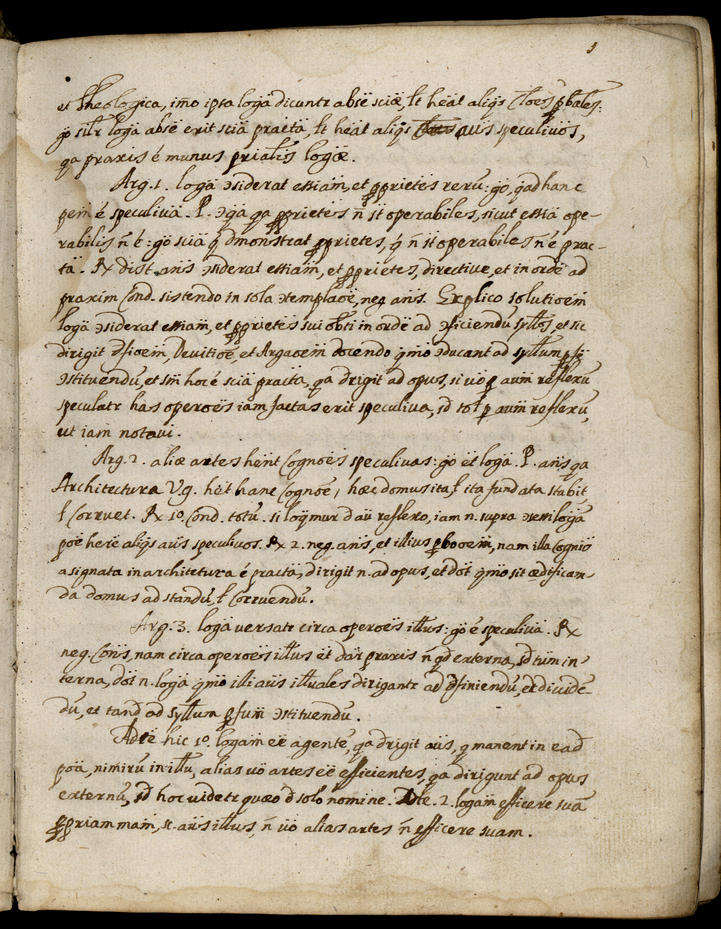 et Theologica, imò ipsa loga dicuntr absē sciæ, lt heāt aliqs Coēs pbales:
go silr loga absē erit sciā practā, lt heāt aliqs aūs speculivos,
qa praxis ē munus prialis logæ.
Arg. 1. loga ↄsiderat essiam, et pprietēs rerū: go, qad hanc
pem ē speculivā. P. ↄqā qa pprietēs n̄ st operabiles, sicut essiā ope-
rabilis n̄ ē: go sciā q̄ dmonstrat pprietēs, q̄ n̄ st operabiles n̄ ē prac-
tā. Rx dist. anīs ↄsiderat essiam, et pprietēs, directivē, et in ordē ad
praxim Cond. sistendo in sola ↄtemplaōē, neg. anīs. Explico solutioēm
loga ↄsiderat essiam, et pprietēs sui obti in ordē ad ↄficiendū syllos, et sic
dirigit dfioēm, Devitioē, et Argaoēm docendo qmo ↄducant ad syllum
ↄstituendū, et sm̄ hoc ē sciā practā, qa drigit ad opus, si uō p aum reflexū
speculatr has operoēs iam factas erit speculiva, sd tot p aum reflexū,
ut iam notavi.
Arg. 2. aliæ artes hēnt Cognoēs speculivas: go et loga. P. anīs qa
Architectura V.g. hēt hanc Cognoē, hæc domus ita, l ita fundata stabit,
l Corruet. Rx 1º. Cond. totū. si loqmur d aū reflexo, iam n. supra ↄcessi loga
poē herē aliqs aūs speculivos. Rx 2. neg. anīs, et illius pbooēm, nam illa Cognio
asignata in architetura ē practā, dirigit n. ad opus, et dōt qmo sit ædifican-
da domus ad standū, l Corruendū.
Arg. 3. loga versatr circa operoēs illus: go ē speculivā. Rx
neg. Conis, nam circa operoēs illus et dār praxis n̄ qd externa, sd tum in-
terna, dōt n. loga qmo illi aūs illuales dirigantr ad dfiniendū, et dividē-
dū, et tand ad syllum pfum ↄstituendū.
Adte hic 1º. logam eē agentē, qa drigit aūs, q manent in eād
poā, nimirū in illu, alias uō artes eē efficientes, qa dirigunt ad opus
externū, sd hoc videtr quæo d solo nomine. Adte. 2. logam efficere suā
ppriam mam, sc. aūs illus, n̄ uō alias artes n̄ efficere suam.